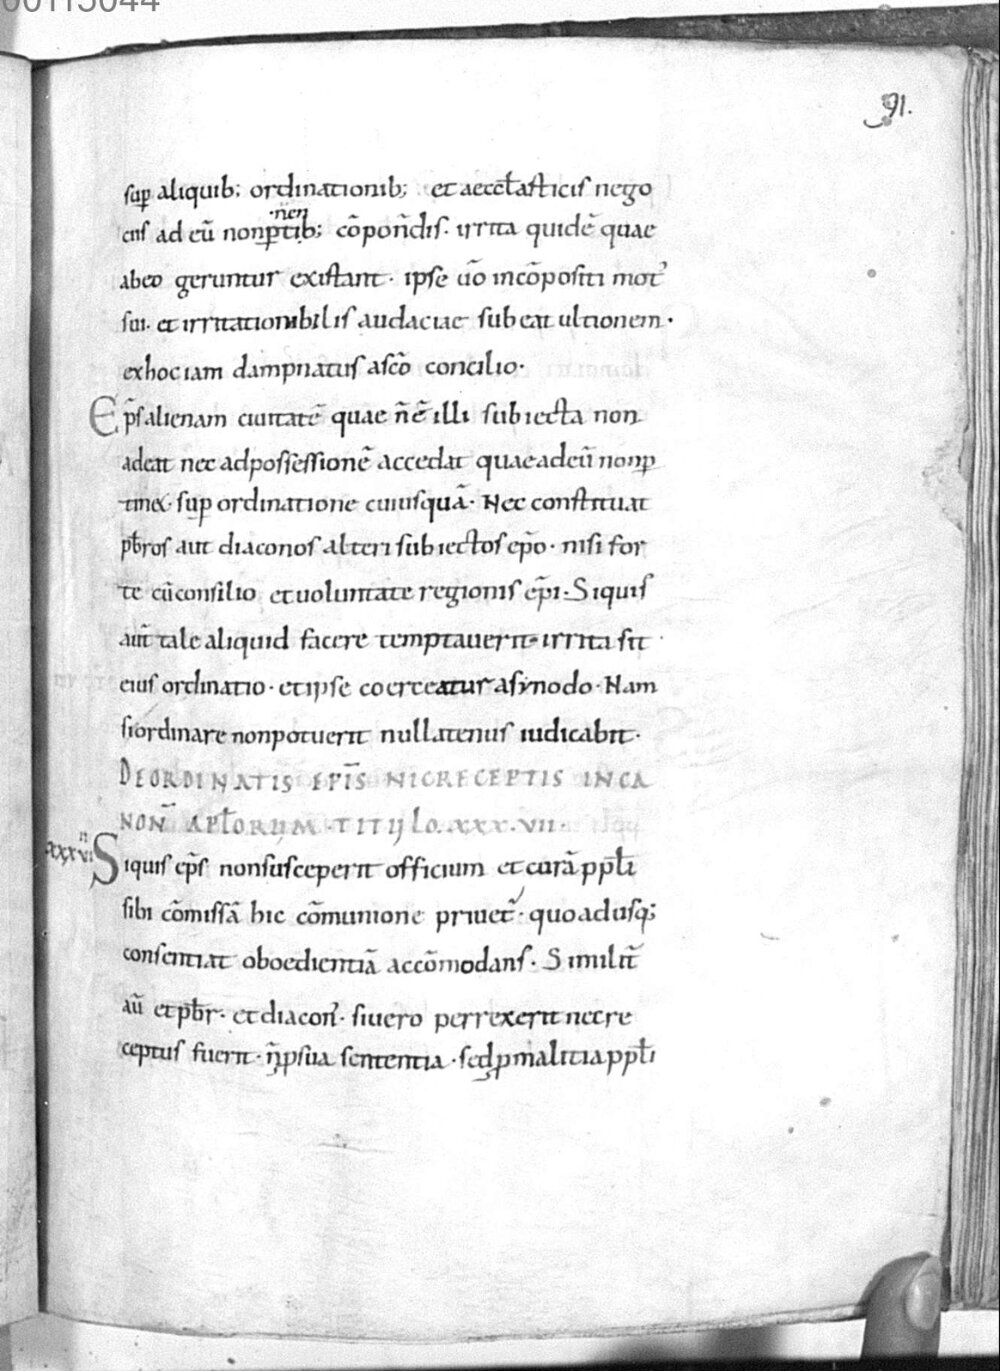 00113044
91.
sup̱ aliquib; ordinationib; et aeccl̄asticis nego
nen
ciis ad eū non ꝑtib; cōpoñdis · irrita quidē quae
ab eo geruntur existant · ipse ūo incōpositi mot᾽
sui · et irrationibilis audaciae subeat ultionem ·
ex hoc iam dampnatus a sc̄o concilio ·
Ep̄s alienam ciuitatē quae ñ ē illi subiecta non
adeat nec ad possessionē accedat quae ad eū non ꝑ
tinet · sup̱ ordinatione cuiusquā · Nec constituat
pb̄ros aut diaconos alteri subiectos ep̄o · nisi for
te cū consilio et uoluntate regionis ep̄i · Siquis
aut̄ tale aliquid facere temptauerit · irrita sit
eius ordinatio · et ipse coerceatur a synodo · Nam
si ordinare non potuerit nullatenus iudicabit ·
DE ORDINATIS EPĪS NIC RECEPTIS IN CA
NON̄ APL̄ORUM · TITULO · XXX · VII ·
xxxvi Siquis ep̄s non susceperit officium et curā ppl̄i
sibi cōmissā hic cōmunione priuet᾽ · quo adusq;
consentiat oboedientiā accōmodans · Similit̄
aū et pb̄r · et diacon᾽ · si uero perrexerit nec re
ceptus fuerit · ñ ꝓ sua sententia · sed ꝓ malitia ppl̄i